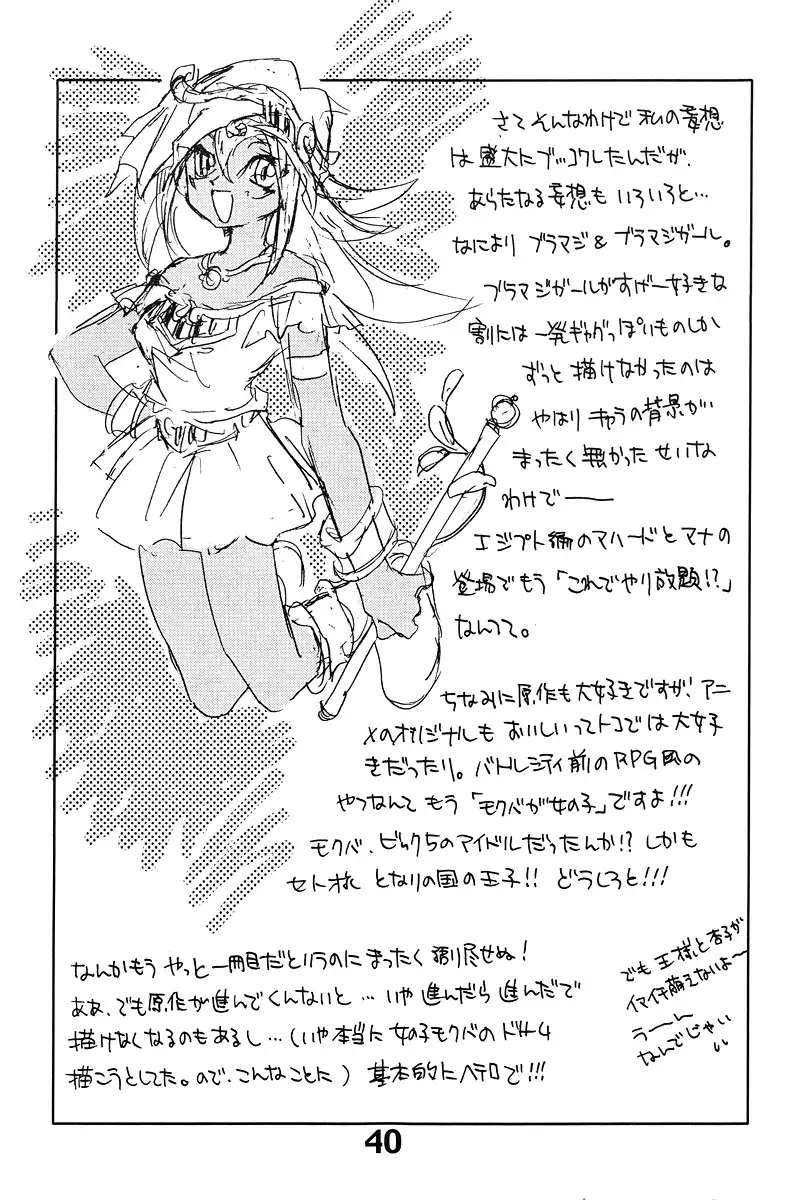 さてそんなわけで私の妄想
は盛大にブッコワしたんだが、
あらたなる妄想もいろいろと…
なにより ブラマジ & ブラマジガール。
ブラマジガールがすげー好きな
割には一発ギャグっぽいものしか
ずっと描けなかったのは
やはりキャラの背景が
まったく無かったせいな
わけで――
エジプト編のマハードとマナの
登場でもう「これでやり放題!?」
なんてて。
ちなみに原作も大好きですが、アニ
メのオリジナルも おいしいってトコでは大好
きだったり。バトルシティ前のRPG風の
やつなんて もう「モクバが女の子」ですよ!!!
モクバ、ビック5のアイドルだったんか!? しかも
セト様 となりの国の王子!! どうしろと!!!
なんかもう やっと一冊目だというのに まったく 張り尽せぬ!
ああ、でも原作が進んでくんないと … いや 進んだら 進んだで
描けなくなるのもあるし…(いや本当に 女の子モクバの
描こうとしてた。ので、こんなことに) 基本的にヘテロで!!!
でも 王様と杏子が
イマイチ萌えないよ〜
う〜ん
なんでじゃい
40